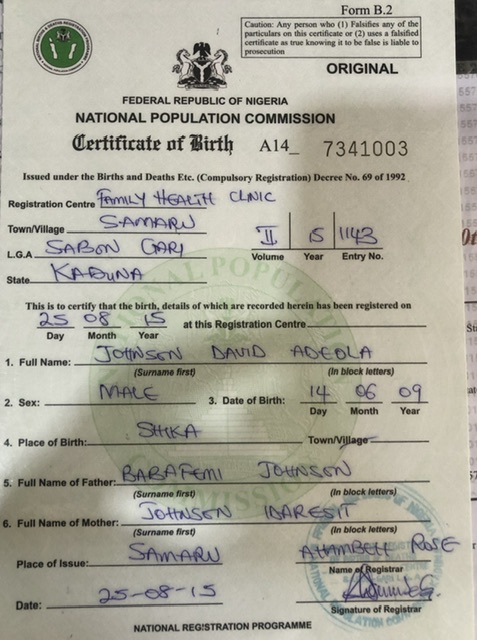 Form B.2
Caution: Any person who (1) Falsifies any of the
particulars on this certificate or (2) uses a falsified
certificate as true knowing it to be false is liable to
prosecution
ORIGINAL
FEDERAL REPUBLIC OF NIGERIA
NATIONAL POPULATION COMMISSION
Certificate of Birth A14_ 7341003
Issued under the Births and Deaths Etc. (Compulsory Registration) Decree No. 69 of 1992
Registration Centre FAMILY HEALTH CLINIC
Town/Village SAMARU
L.G.A SABON GARI
State KADUNA
II 15 1143
Volume Year Entry No.
This is to certify that the birth, details of which are recorded herein has been registered on
25 08 15 at this Registration Centre
Day Month Year
1. Full Name: JOHNSON DAVID ADEOLA
(Surname first) (In block letters)
2. Sex: MALE 3. Date of Birth: 14 06 09
Day Month Year
4. Place of Birth: SHIKA Town/Village
5. Full Name of Father: BABAFEMI JOHNSON
(Surname first) (In block letters)
6. Full Name of Mother: JOHNSON IDARESIT
(Surname first) (In block letters)
Place of Issue: SAMARU ROSE
Name of Registrar
Date: 25-08-15
Signature of Registrar
NATIONAL REGISTRATION PROGRAMME